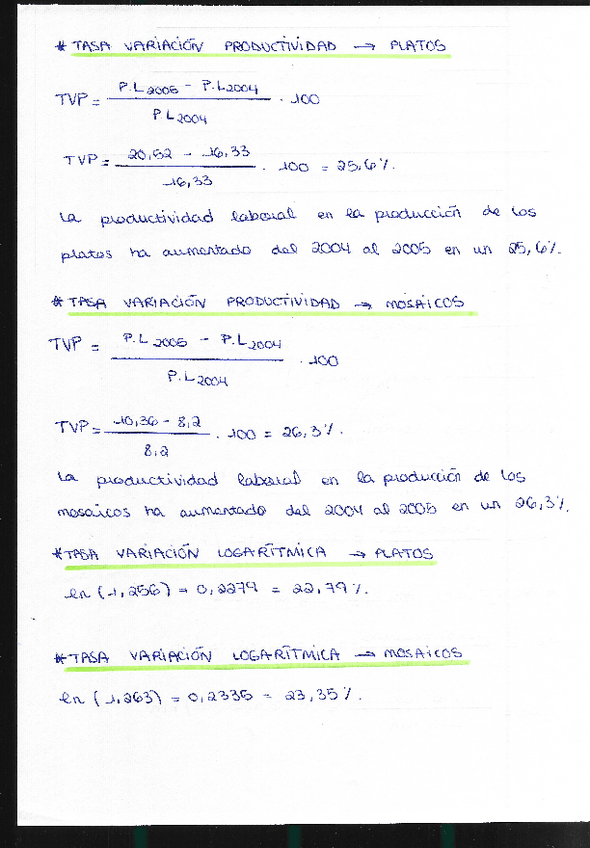 * TASA VARIACIÓN PRODUCTIVIDAD → PLATOS
TVP = P.L2005 - P.L2004 / P.L2004 · 100
TVP = 20,52 - 16,33 / 16,33 · 100 = 25,6%.
La productividad laboral en la producción de los
platos ha aumentado del 2004 al 2005 en un 25,6%.
* TASA VARIACIÓN PRODUCTIVIDAD → MOSAICOS
TVP = P.L2005 - P.L2004 / P.L2004 · 100
TVP = 10,36 - 8,2 / 8,2 · 100 = 26,3%.
La productividad laboral en la producción de los
mosaicos ha aumentado del 2004 al 2005 en un 26,3%.
* TASA VARIACIÓN LOGARÍTMICA → PLATOS
ln (1,256) = 0,2279 = 22,79%.
* TASA VARIACIÓN LOGARÍTMICA → MOSAICOS
ln (1,263) = 0,2335 = 23,35%.